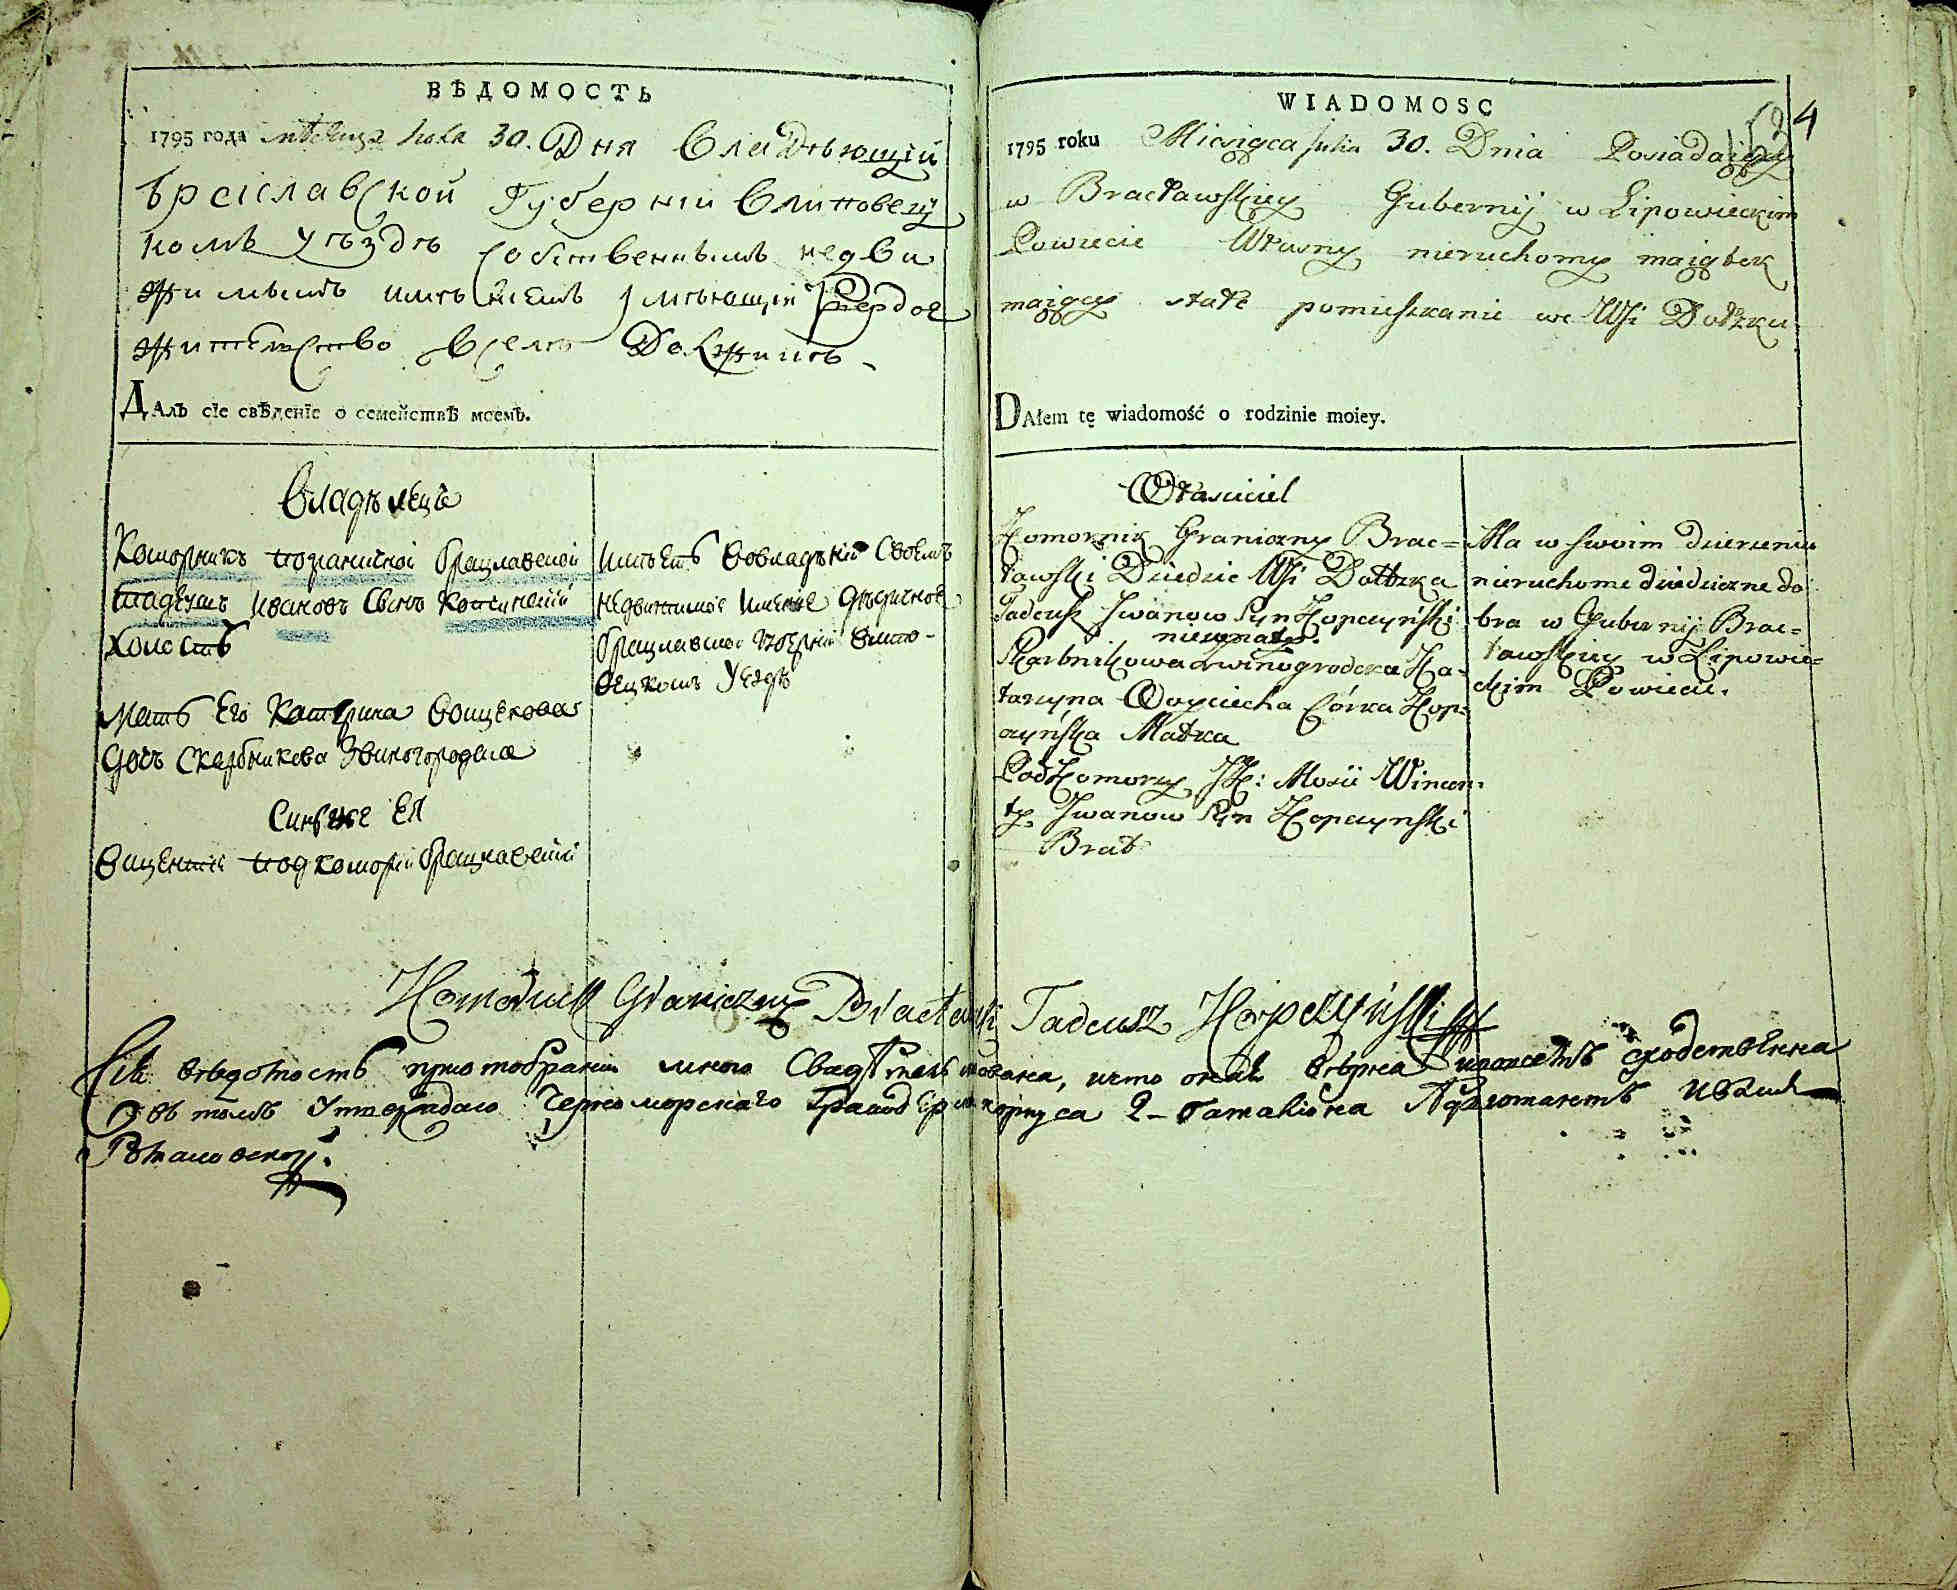 ВѢДОМОСТЬ
1795 года мѣсяца Іюля 30. Дня Владѣющій
Брацлавской Губерніи Влиповец
комъ уѣздѣ собственнымъ недви
жимымъ имѣніемъ имѣющій
жительство Вселѣ
Далъ сіе свѣденіе о семействѣ моемъ.
Владѣлецъ
Коморникъ пограничной брацлавской
тадеушъ ивановъ Сынъ
холостъ
Мать Его Катерина
дочь Скарбникова Звиногородска
Сынъ Ея
Виценти подкоморій брацлавскій
имѣетъ вовладѣніи Своемъ
недвижимое имение дѣдичное
брацлавской губерніи влипо-
вецкомъ Уездѣ
WIADOMOSC
4
1795 roku Miesiąca Julia 30. Dnia Posiadaiący
w Bracławskiey Gubernij w Lipowieckim
Powiecie Własny nieruchomy maiątek
maiący stałe pomieszkanie we Wsi Dołżku
DAłem tę wiadomość o rodzinie moiey.
Właściciel
Komornik Graniczny Brac=
ławski Dziedzic Wsi Dołżka
Tadeusz Iwanow Syn Kopczyński
nieżonaty.
Skarbnikowa zwinogrodzka Ka-
tarzyna Woyciecha Córka Kop-
czyńska Matka
PodKomorzy JK: Mości Wincen-
ty Iwanow Syn Kopczyński
Brat
Ma w swoim dzierżeniu
nieruchome dziedziczne do
bra w Gubernij Brac=
ławskiey w Lipowie=
ckim Powiecie.
Komornik Graniczny Bracławski Tadeusz Kopczyński
Сія вѣдомость при отобраніи мною Свидѣтельствована, что оная вѣрна и
въ томъ Утверждаю Черноморскаго Гранодерск: корпуса 2-баталіона Адъютантъ Иванъ